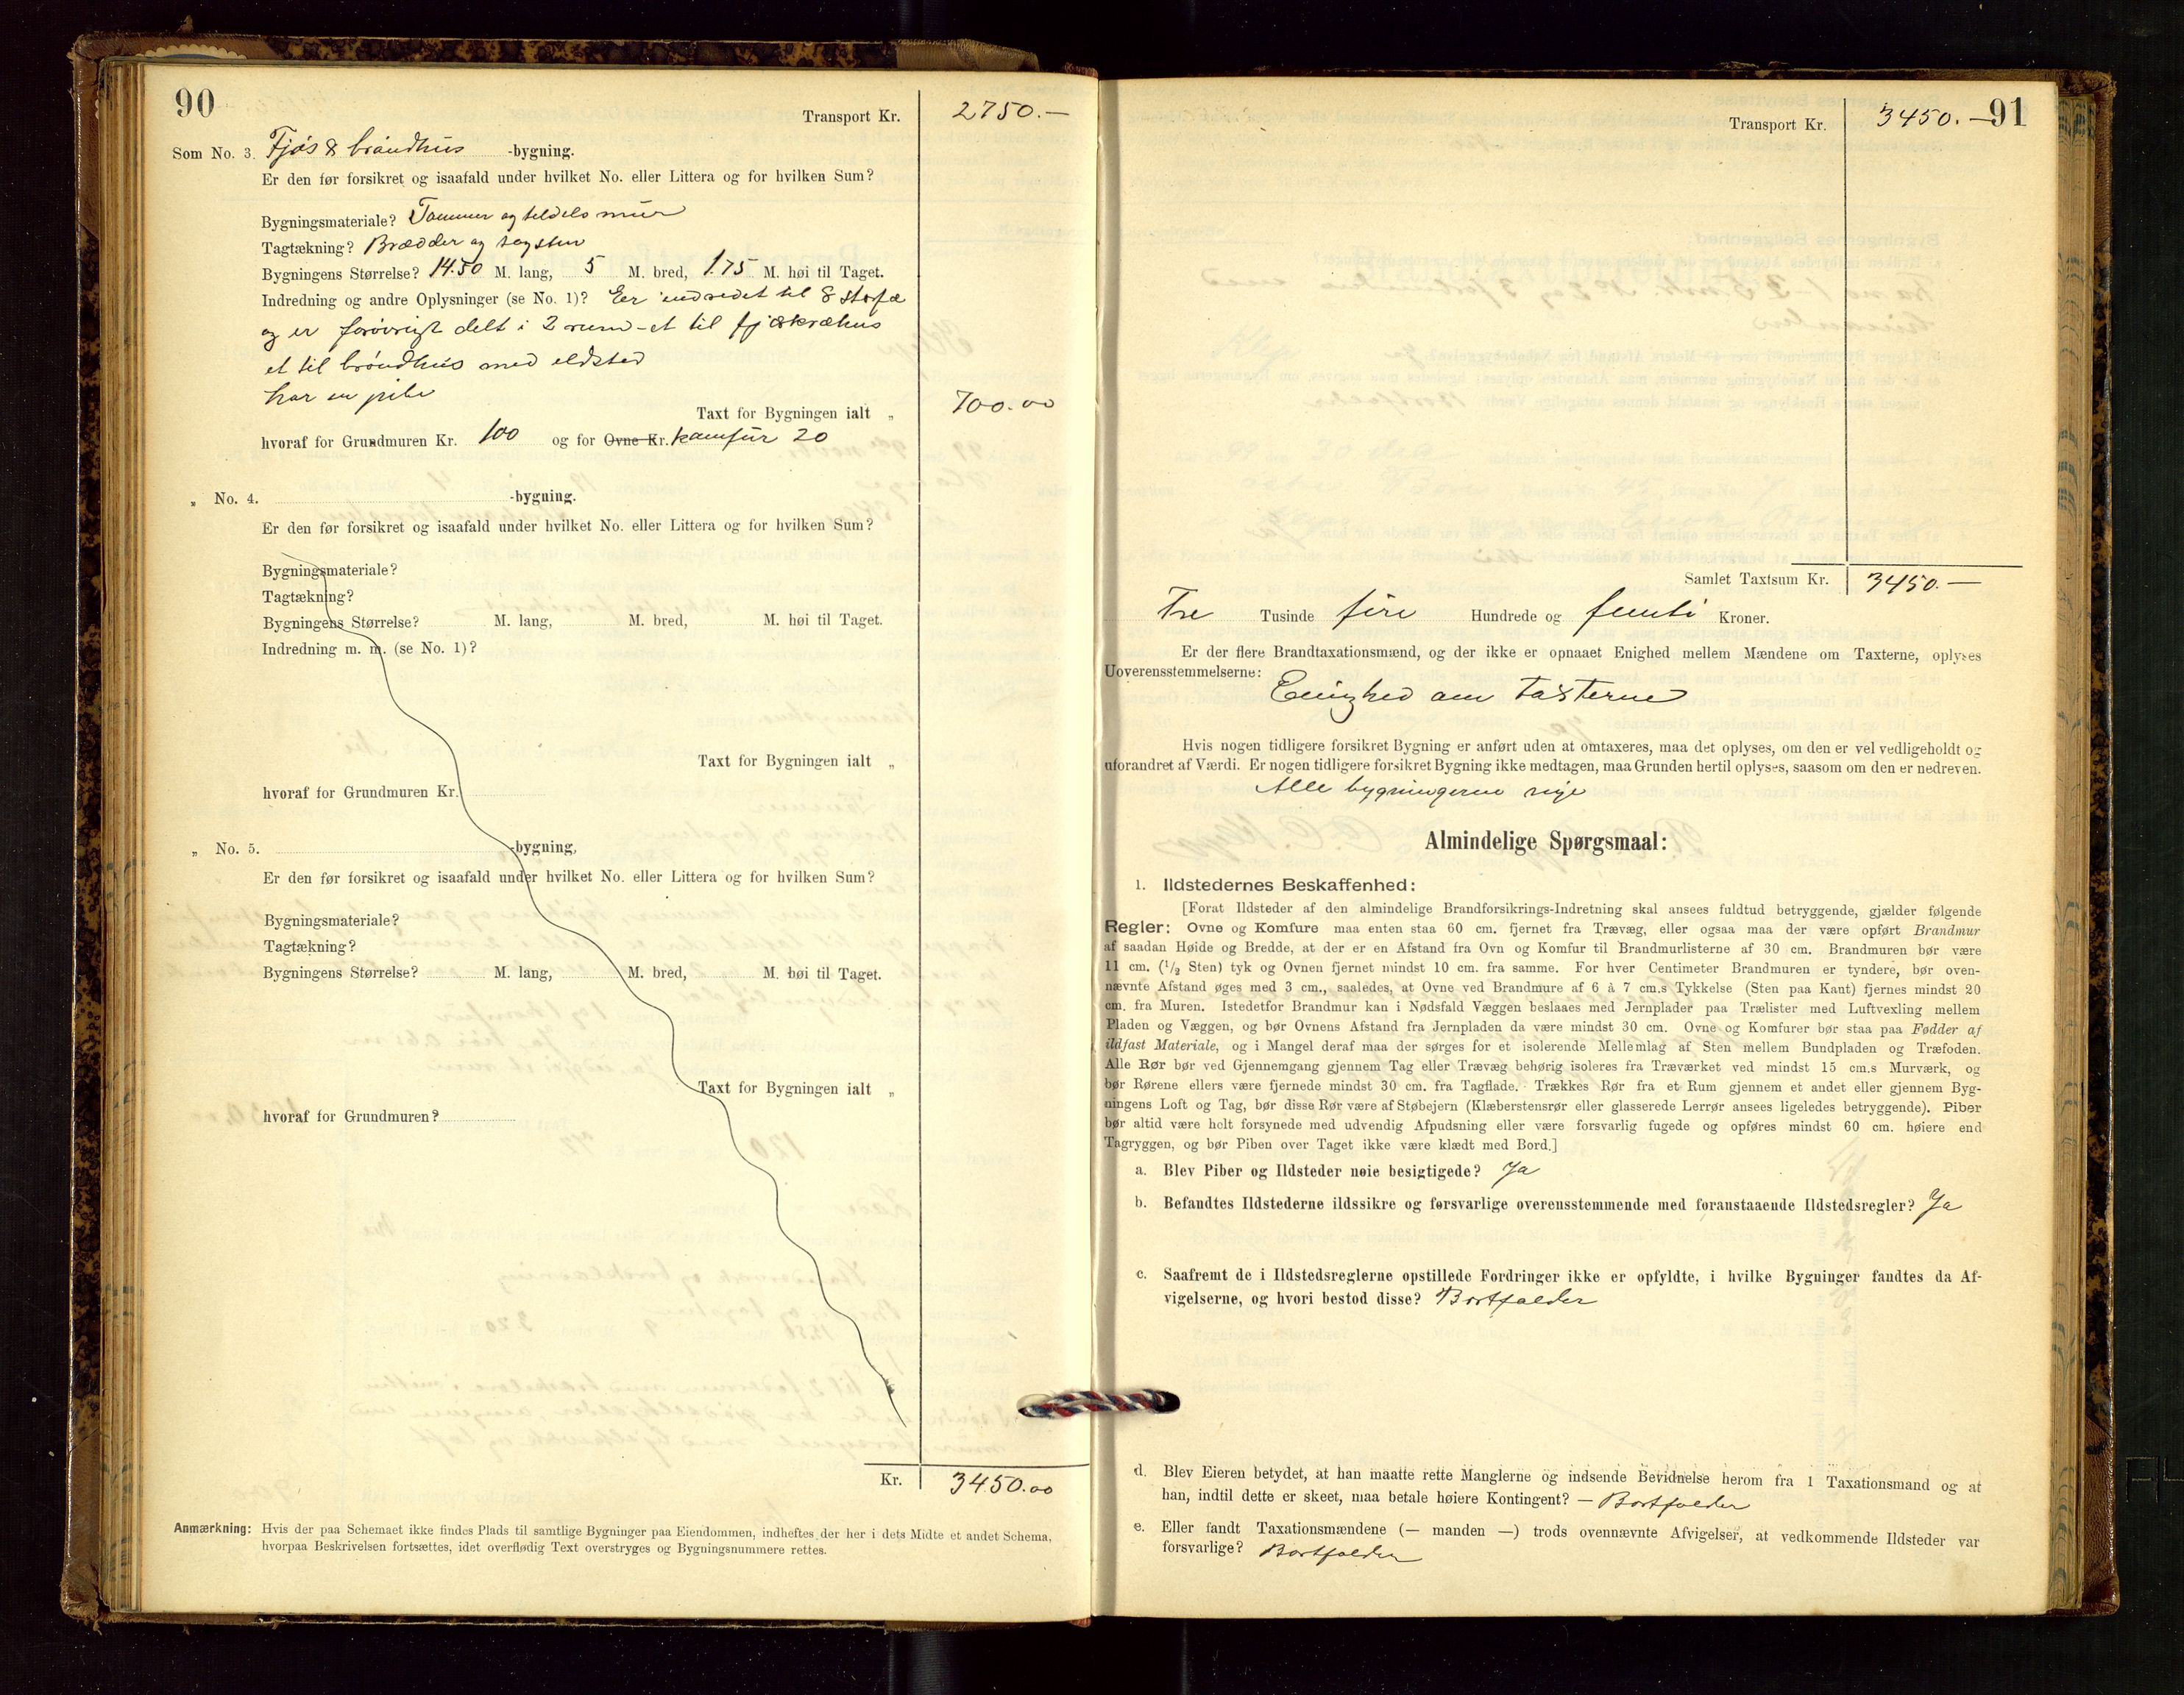 90
Transport Kr. 2750.—
Som No. 3. Fjøs & brøndhus -bygning.
Er den før forsikret og isaafald under hvilket No. eller Littera og for hvilken Sum?
Bygningsmateriale? Tømmer og teldels mur
Tagtækning? Brædder og tagsten
Bygningens Størrelse? 14.50 M. lang, 5 M. bred, 1.75 M. høi til Taget.
Indredning og andre Oplysninger (se No. 1)? Eer indredet til 8 storfæ
og er forøvrigt delt i 2 rum - et til fjøskræhus
et til brøndhus med eldsted
har en pibe
Taxt for Bygningen ialt „ 700.00
hvoraf for Grundmuren Kr. 100 og for Ovne Kr. komfur 20
„ No. 4. -bygning.
Er den før forsikret og isaafald under hvilket No. eller Littera og for hvilken Sum?
Bygningsmateriale?
Tagtækning?
Bygningens Størrelse? M. lang, M. bred, M. høi til Taget.
Indredning m. m. (se No. 1)?
Taxt for Bygningen ialt „
hvoraf for Grundmuren Kr.
„ No. 5. -bygning,
Er den før forsikret og isaafald under hvilket No. eller Littera og for hvilken Sum?
Bygningsmateriale?
Tagtækning?
Bygningens Størrelse? M. lang, M. bred, M. høi til Taget.
Taxt for Bygningen ialt „
hvoraf for Grundmuren?
Kr. 3450.00
Anmærkning: Hvis der paa Schemaet ikke findes Plads til samtlige Bygninger paa Eiendommen, indheftes der her i dets Midte et andet Schema,
hvorpaa Beskrivelsen fortsættes, idet overflødig Text overstryges og Bygningsnummere rettes.
91
Transport Kr. 3450.—
Samlet Taxtsum Kr. 3450.—
Tre Tusinde fire Hundrede og femti Kroner.
Er der flere Brandtaxationsmænd, og der ikke er opnaaet Enighed mellem Mændene om Taxterne, oplyses
Uoverensstemmelserne: Eenighed om taxterne
Hvis nogen tidligere forsikret Bygning er anført uden at omtaxeres, maa det oplyses, om den er vel vedligeholdt og
uforandret af Værdi. Er nogen tidligere forsikret Bygning ikke medtagen, maa Grunden hertil oplyses, saasom om den er nedreven.
Alle bygningerne nye
Almindelige Spørgsmaal:
1. Ildstedernes Beskaffenhed:
[Forat Ildsteder af den almindelige Brandforsikrings-Indretning skal ansees fuldtud betryggende, gjælder følgende
Regler: Ovne og Komfure maa enten staa 60 cm. fjernet fra Trævæg, eller ogsaa maa der være opført Brandmur
af saadan Høide og Bredde, at der er en Afstand fra Ovn og Komfur til Brandmurlisterne af 30 cm. Brandmuren bør være
11 cm. (1/2 Sten) tyk og Ovnen fjernet mindst 10 cm. fra samme. For hver Centimeter Brandmuren er tyndere, bør oven-
nævnte Afstand øges med 3 cm., saaledes, at Ovne ved Brandmure af 6 à 7 cm.s Tykkelse (Sten paa Kant) fjernes mindst 20
cm. fra Muren. Istedetfor Brandmur kan i Nødsfald Væggen beslaaes med Jernplader paa Trælister med Luftvexling mellem
Pladen og Væggen, og bør Ovnens Afstand fra Jernpladen da være mindst 30 cm. Ovne og Komfurer bør staa paa Fødder af
ildfast Materiale, og i Mangel deraf maa der sørges for et isolerende Mellemlag af Sten mellem Bundpladen og Træfoden.
Alle Rør bør ved Gjennemgang gjennem Tag eller Trævæg behørig isoleres fra Træværket ved mindst 15 cm.s Murværk, og
bør Rørene ellers være fjernede mindst 30 cm. fra Tagflade. Trækkes Rør fra et Rum gjennem et andet eller gjennem Byg-
ningens Loft og Tag, bør disse Rør være af Støbejern (Klæberstensrør eller glasserede Lerrør ansees ligeledes betryggende). Piber
bør altid være helt forsynede med udvendig Afpudsning eller være forsvarlig fugede og opføres mindst 60 cm. høiere end
Tagryggen, og bør Piben over Taget ikke være klædt med Bord.]
a. Blev Piber og Ildsteder nøie besigtigede? Ja
b. Befandtes Ildstederne ildssikre og forsvarlige overensstemmende med foranstaaende Ildstedsregler? Ja
c. Saafremt de i Ildstedsreglerne opstillede Fordringer ikke er opfyldte, i hvilke Bygninger fandtes da Af-
vigelserne, og hvori bestod disse? Bortfalder
d. Blev Eieren betydet, at han maatte rette Manglerne og indsende Bevidnelse herom fra 1 Taxationsmand og at
han, indtil dette er skeet, maa betale høiere Kontingent? — Bortfalder
e. Eller fandt Taxationsmændene (— manden —) trods ovennævnte Afvigelser, at vedkommende Ildsteder var
forsvarlige? Bortfalder